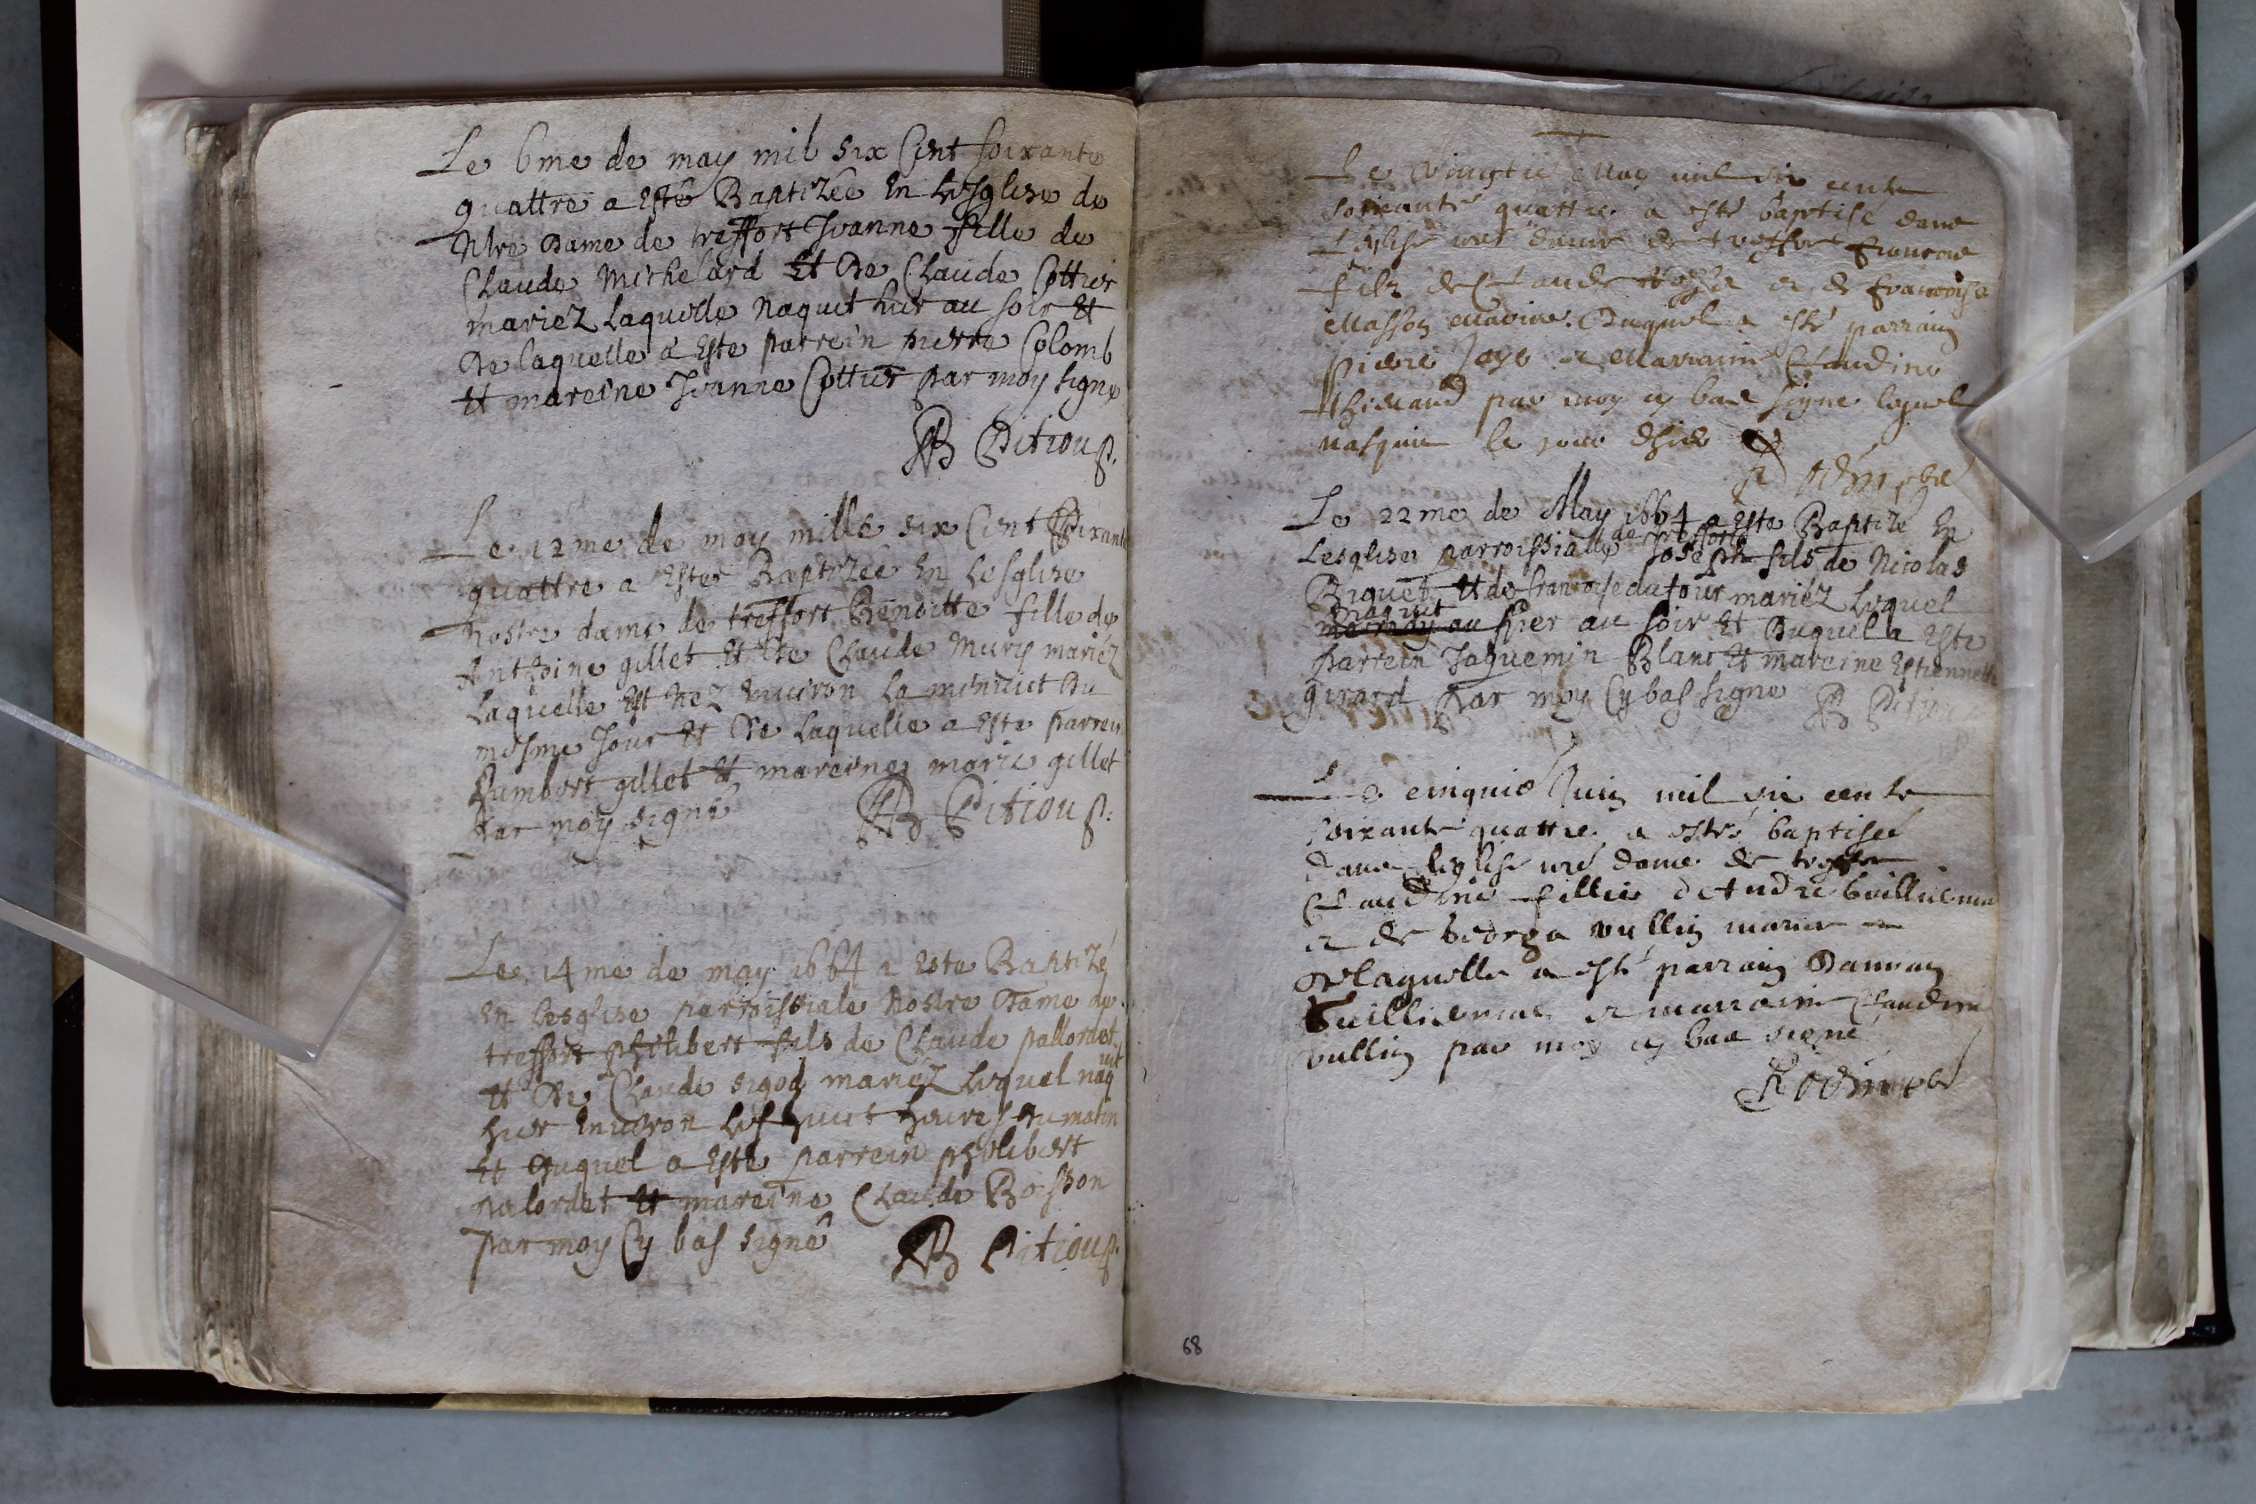 Le 6me de may mil six Cent soixante
quattre a Esté Baptizée En Lesglise de
Nre Dame de treffort Jeanne fille de
Claude Michelard Et De Claude Cottier
mariez Laquelle Naquit hier au soir Et
De laquelle a Este parrein pierre Colomb
Et mareine Jeanne Cottier par moy signe
Pitiou p.
Le 12me de may mille six Cent soixante
quattre a Estee Baptizée En Lesglise
Nostre dame de treffort Benoitte fille de
Anthoine gillet Et De Claude Mury mariéz
Laquelle Est Nez Environ La minuict Du
mesme Jour Et De Laquelle a Este parrein
Humbert gillet Et mareine marie gillet
par moy signé
Pitiou p.
Le 14me de may 1664 a Este Baptizé
En Lesglise parroissiale Nostre Dame de
treffort philibert fils de Claude pallordet
Et De Claude sigod mariéz Lequel naquit
hier Environ Les huict heures du matin
Et Duquel a Esté parrein philibert
palordet Et mareine Claude Boisson
par moy Cy bas signé
Pitiou p.
Le vingtie May mil six cents
soixante quattre a esté baptisé dans
L'eglise nre dame de treffort francois
filz de Claude et de francoise
Masson Duquel a esté parrain
pierre Joye et Marraine Claudine
par moy cy bas signe lequel
nasquit le jour d'hier
Le 22me de May 1664 a Este Baptizé En
Lesglise parroissialle de treffort Joseph fils de Nicolas
Biquet Et de francoise dufour mariéz Lequel
naquit hier au soir Et Duquel a Este
parrein Jaquemin Blanc Et mareine Estiennette
girard par moy Cy bas signe
Pitiou
Le cinquie Juin mil six cents
soixante quattre a esté baptisée
dans leglise nre dame de treffort
Claudine fillie d'Andre Guillierme
et de George vullin mariés
De laquelle a esté parrain Damian
Guillierme et marraine Claudine
vullin par moy cy bas signé
68